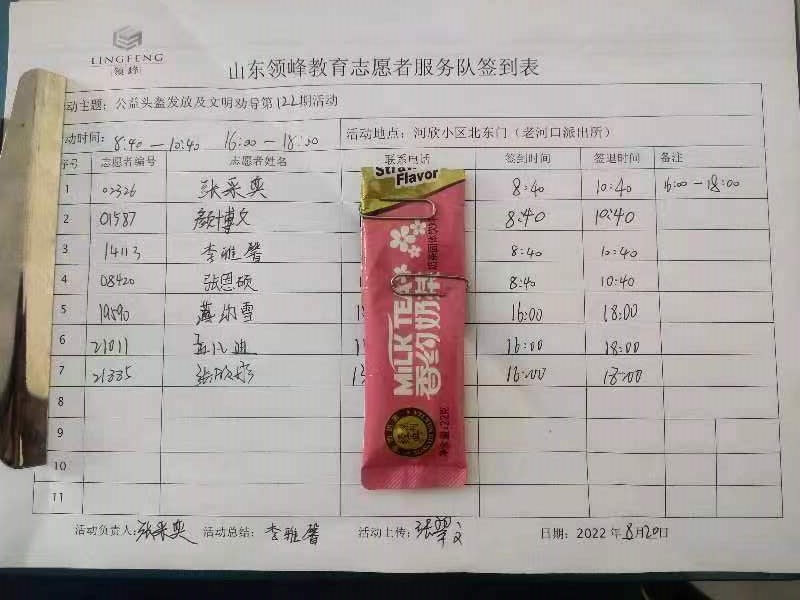 LINGFENG
领峰
山东领峰教育志愿者服务队签到表
动主题：公益头盔发放及文明劝导第122期活动
动时间：8:40 — 10:40 16:00 — 18:00 活动地点：河欣小区北东门（老河口派出所）
序号 志愿者编号 志愿者姓名 联系电话 签到时间 签退时间 备注
1 02326 张采奕 8:40 10:40 16:00 — 18:00
2 01587 颜博文 8:40 10:40
3 14113 李雅馨 8:40 10:40
4 08420 张恩硕 8:40 10:40
5 19590 16:00 18:00
6 21011 16:00 18:00
7 21335 16:00 18:00
8
9
10
11
Flavor
MILK TEA
香约奶茶
净含量:22克
活动负责人:张采奕 活动总结: 李雅馨 活动上传: 日期: 2022年8月20日